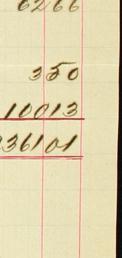 6266
350
10013
36101